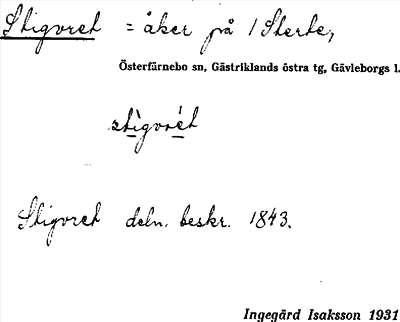 Stigvret = åker på 1 Sterte,
Österfärnebo sn, Gästriklands östra tg, Gävleborgs l.
stìgvrét
Stigvret deln. beskr. 1843.
Ingegärd Isaksson 1931